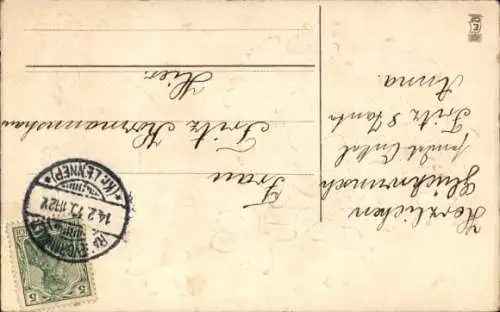 Herzlichen
Glückwunsch
sendet Onkel
Fritz & Tante
Anna.
Frau
Fritz
Hier.
(KR. LENNEP)
14.2.12. 11-12V
5 5